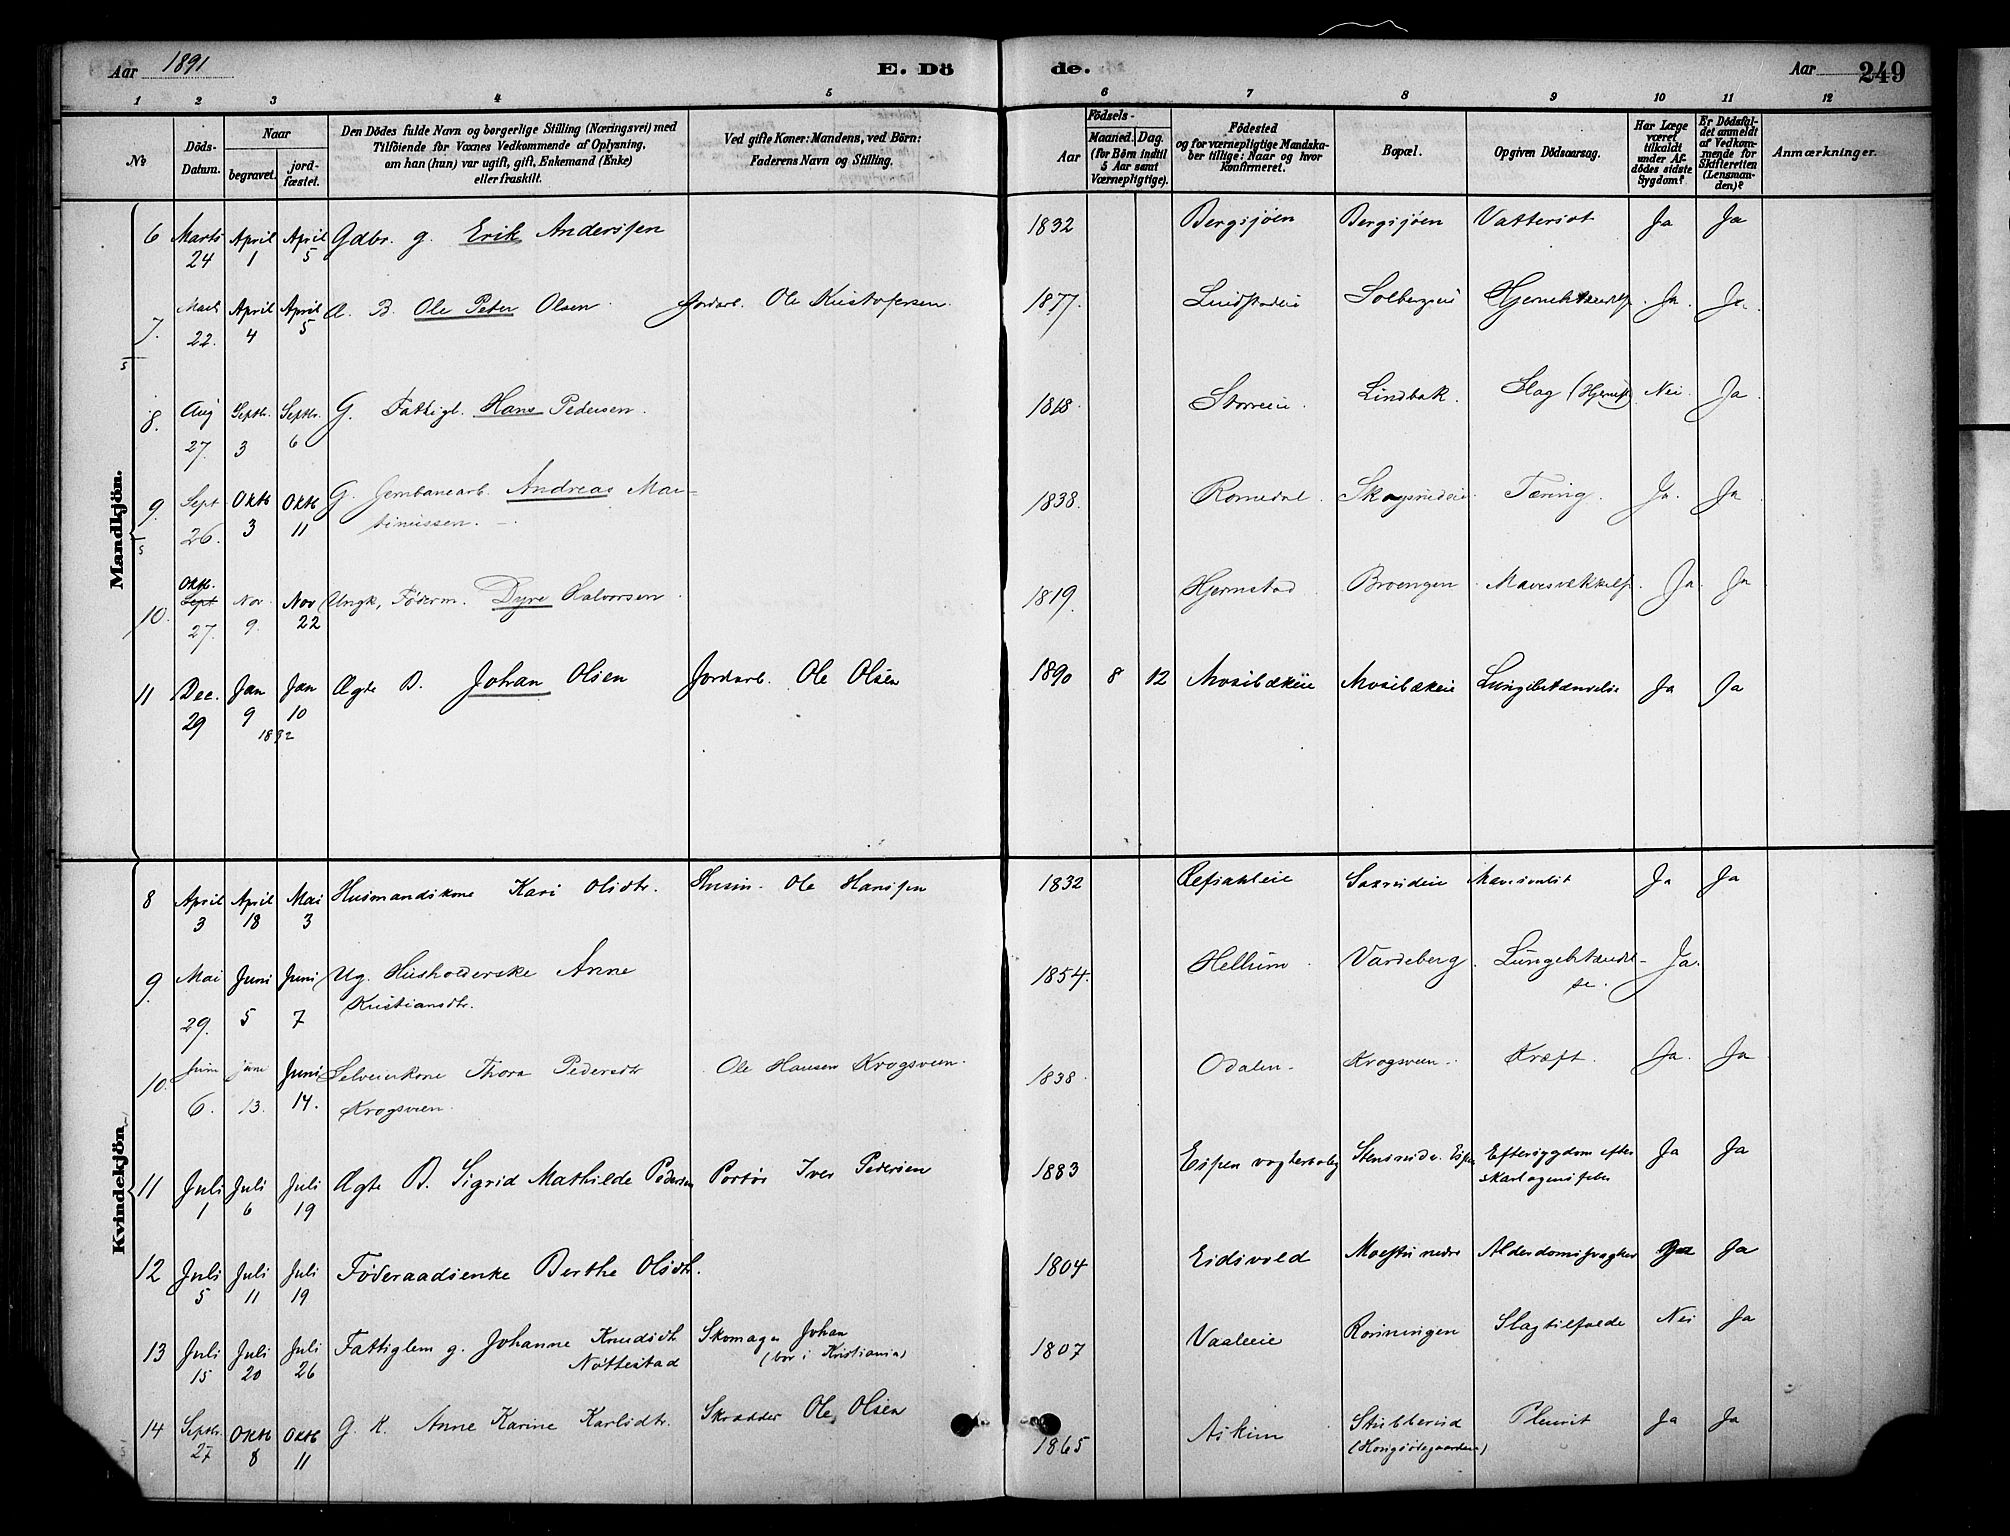 Aar 1891 E. Dö de. Aar 249
1 2 3 4 5 6 7 8 9 10 11 12
No
Döds-Datum.
Naar begravet. jordfæstet.
Den Dödes fulde Navn og borgerlige Stilling (Næringsvei) med Tilföiende for Voxnes Vedkommende af Oplysning, om han (hun) var ugift, gift, Enkemand (Enke) eller fraskilt.
Ved gifte Koner: Mandens, ved Börn: Faderens Navn og Stilling.
Födsels- Aar Maaned. Dag. (for Börn indtil 5 Aar samt Værnepligtige).
Födested og for værnepligtige Mandskaber tillige: Naar og hvor Konfirmeret.
Bopæl.
Opgiven Dödsaarsag.
Har Læge været tilkaldt under Afdödes sidste Sygdom?
Er Dödsfaldet anmeldt af Vedkommende for Skifteretten (Lensmanden)?
Anmærkninger.
Mandkjön.
6 Marts 24 April 1 April 5 Gdbr. g. Erik Anderssen 1832 Bergsjöen Bergsjöen Vattersot Ja Ja
7. Marts 22. April 4 April 5 Æ. B. Ole Peter Olsen Jordarb. Ole Kristofersen. 1877. Solbergeie Ja. Ja.
8. Aug 27. Septr. 3 Septr. 6 G. Fattigl. Hans Pedersen. 1818. Storreie. Lindbæk. Slag Nei. Ja.
9. Sept 26. Oktb 3 Oktb 11 G. Jernbanearb. Andreas Martinussen. 1838. Romedal. Skogsrudeie. Tæring. Ja. Ja
10. Oktb. Sept 27. Nov. 9. Nov 22 Ungk. Föderm. Dyre Halvorsen 1819. Hjermstad Broengen Mavesvækkelse. Ja. Ja
11 Dec. 29 Jan 9 Jan 10 1892 Ægte B. Johan Olsen Jordarb. Ole Olsen 1890 8 12 Mosibækeie Mosibækeie Lungebetændelse Ja Ja
Kvindekjön.
8 April 3 April 18 Mai 3 Husmandskone Kari Olsdtr. Husm. Ole Hanssen 1832 Refsahleie Saxrudeie Ja Ja
9. Mai 29. Juni 5 Juni 7 Ug. Husholderske Anne Kristiansdtr. 1854. Hellum. Vardeberg. Lungebetændelse. Ja.
10. Juni 6. Juni 13. Juni 14. Selveierkone Thora Pedersdtr Krogsveen. Ole Hansen Krogsveen. 1838. Odalen. Krogsveen. Kræft. Ja. Ja
11 Juli 1 Juli 6 Juli 19 Ægte B. Sigrid Mathilde Pedersen Portör Iver Pedersen 1883 Espen vogterbolig Stensrudv. Espen Eftersygdom efter skarlagensfeber Ja Ja
12 Juli 5 Juli 11 Juli 19 Föderaadsenke Berthe Olsdtr. 1804 Eidsvold Moestu nedre Alderdomssvaghed Ja Ja
13 Juli 15 Juli 20 Juli 26 Fattiglem g. Johanne Knudsdtr Nöttestad Skomager Johan (bor i Kristiania) 1807 Vaaleeie Rönningen Slagtilfælde Nei Ja
14 Septr. 27 Oktb 8 Oktb 11 G. K. Anne Karine Karlsdtr. Skrædder Ole Olsen 1865 Askim Stubberud Pleurit Ja Ja